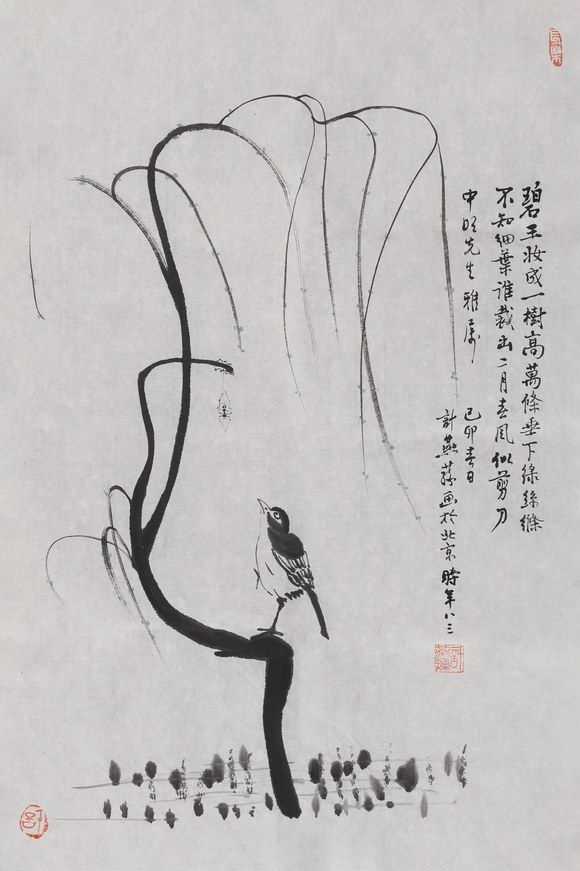 碧玉妝成一樹高萬條垂下綠絲絛
不知細葉誰裁出二月春風似剪刀
中旺先生雅屬
己卯春日
計燕蓀画於北京時年八三